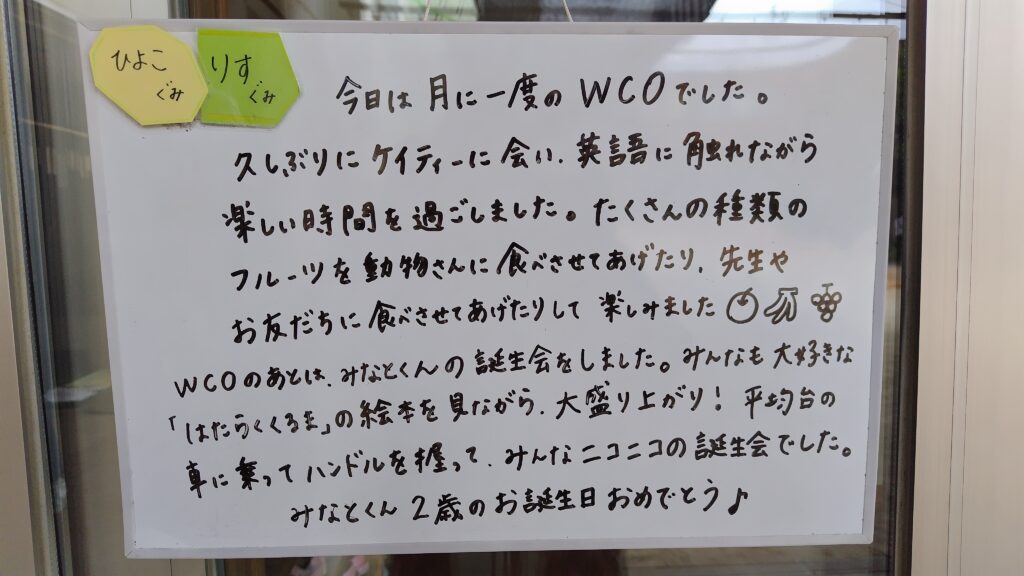 ひよこ
ぐみ
りす
ぐみ
今日は 月に一度の WCOでした。
久しぶりに ケイティーに会い、英語に触れながら
楽しい時間を過ごしました。たくさんの種類の
フルーツを動物さんに食べさせてあげたり、先生や
お友だちに食べさせてあげたりして 楽しみました
WCOのあとは、みなとくんの誕生会をしました。みんなも大好きな
「はたらくくるま」の絵本を見ながら、大盛り上がり！ 平均台の
車に乗ってハンドルを握って、みんなニコニコの誕生会でした。
みなとくん 2歳のお誕生日おめでとう♪